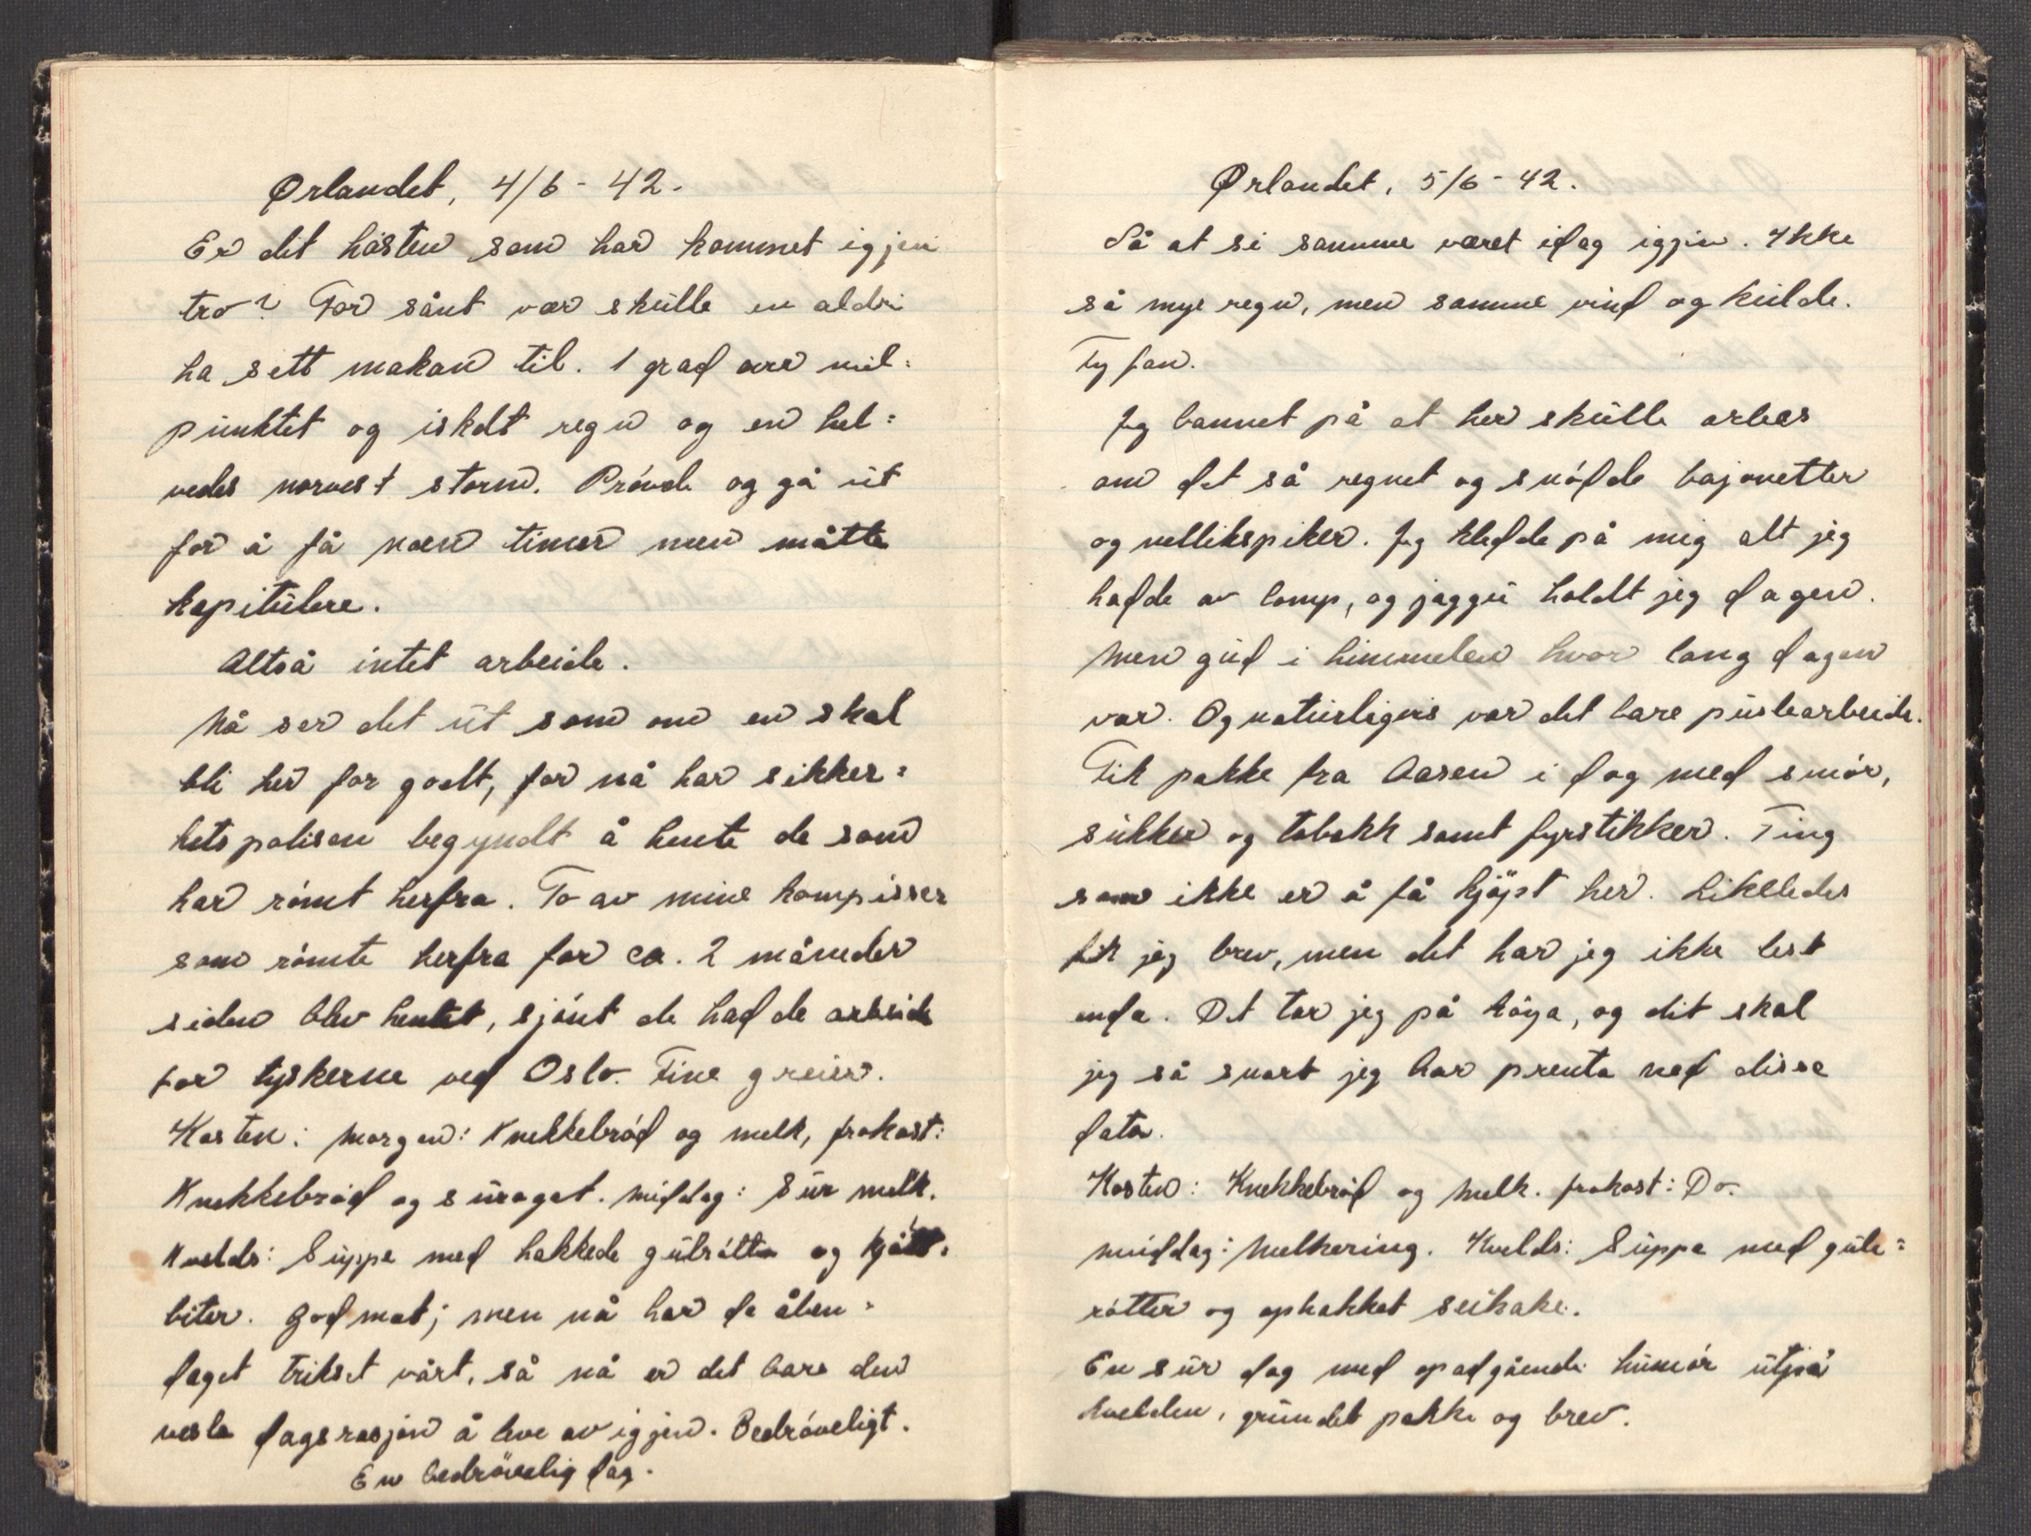 Ørlandet, 4/6 - 42.
Er det hösten som har kommet igjen
tro? For sånt vær skulle en aldri
ha sett makan til. 1 grad over nul=
punktet og iskalt regn og en hel=
vedes norvest storm. Prövde og gå ut
for å få noen timer men måtte
kapitulere.
Altså intet arbeide.
Nå ser det ut som om en skal
bli her for godt, for nå har sikker=
hetspolisen begyndt å hente de som
har römt herfra. To av mine kompisser
som römte herfra for ca. 2 måneder
siden blev hentet, sjönt de hadde arbeide
for tyskerne ved Oslo. Fine greier.
Kosten: Morgen: Knekkebröd og melk, frokost:
Knekkebröd og surogat. Middag: Sur melk.
Kvelds: Suppe med hakkede gulrötter og kjött=
biter. God mat; men nå har de åben=
daget trikset vårt, så nå er det bare den
vesle dagsrasjon å leve av igjen. Bedröveligt.
En bedrövelig dag.
Ørlandet, 5/6 - 42.
Så at si samme været idag igjen. Ikke
så mye regn, men samme vind og kulde.
Fy fan.
Jeg bannet på at her skulle arbes
om det så regnet og snödde bajonetter
og nellikspiker. Jeg kledde på mig alt jeg
hadde av lomp, og jaggu holdt jeg dagen.
Men gud i himmelen hvor lang dagen
var. Og naturligvis var det bare puslearbeide.
Fik pakke fra Aasen i dag med smör,
sukker og tobakk samt fyrstikker. Ting
som ikke er å få kjöpt her. Likeledes
fik jeg brev, men det har jeg ikke lest
enda. Det tar jeg på köya, og dit skal
jeg så snart jeg har prenta ned disse
data.
Kosten: Knekkebröd og melk. frokost: Do.
middag: Melkering. Kvelds: Suppe med gule=
rötter og ophakket seikake.
En sur dag med opadgående humör utpå
kvelden, grundet pakke og brev.